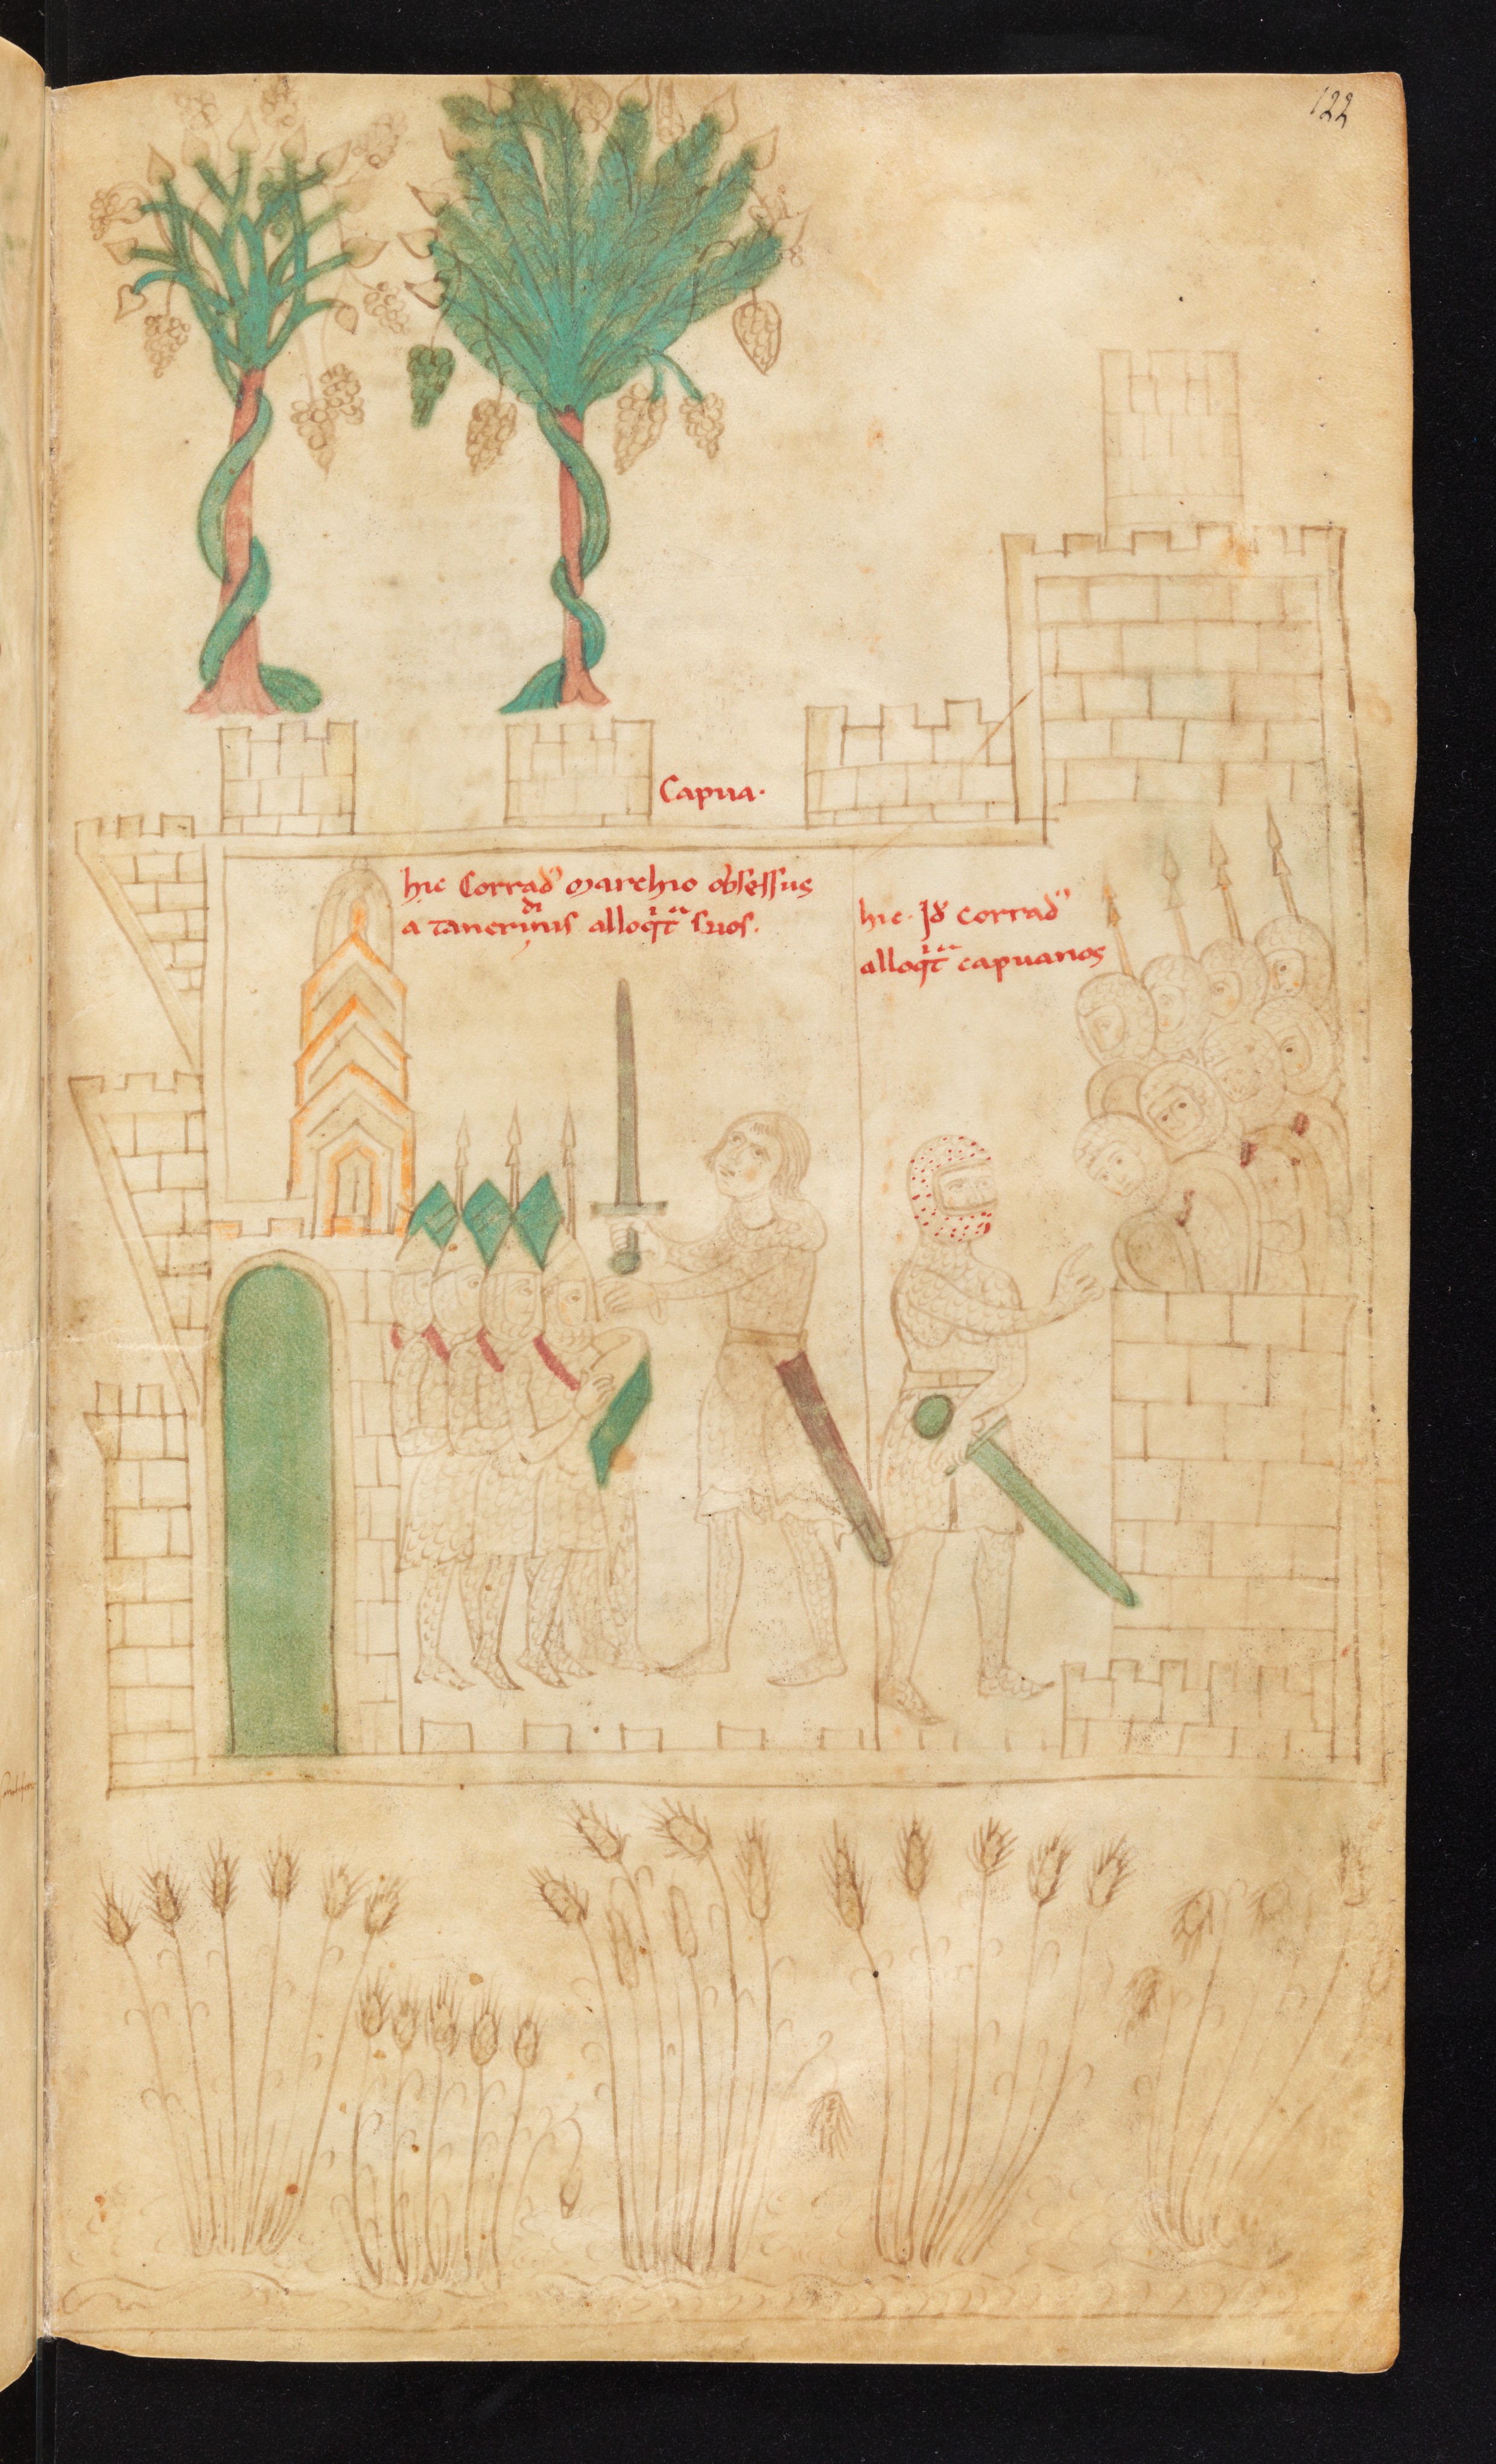 122
Capua.
hic Corrad⁹ marchio obsessus
a Tancridinis alloq͛tᵃ suos.
hic Id̄ corrad⁹
alloq͛tᵃ capuanos